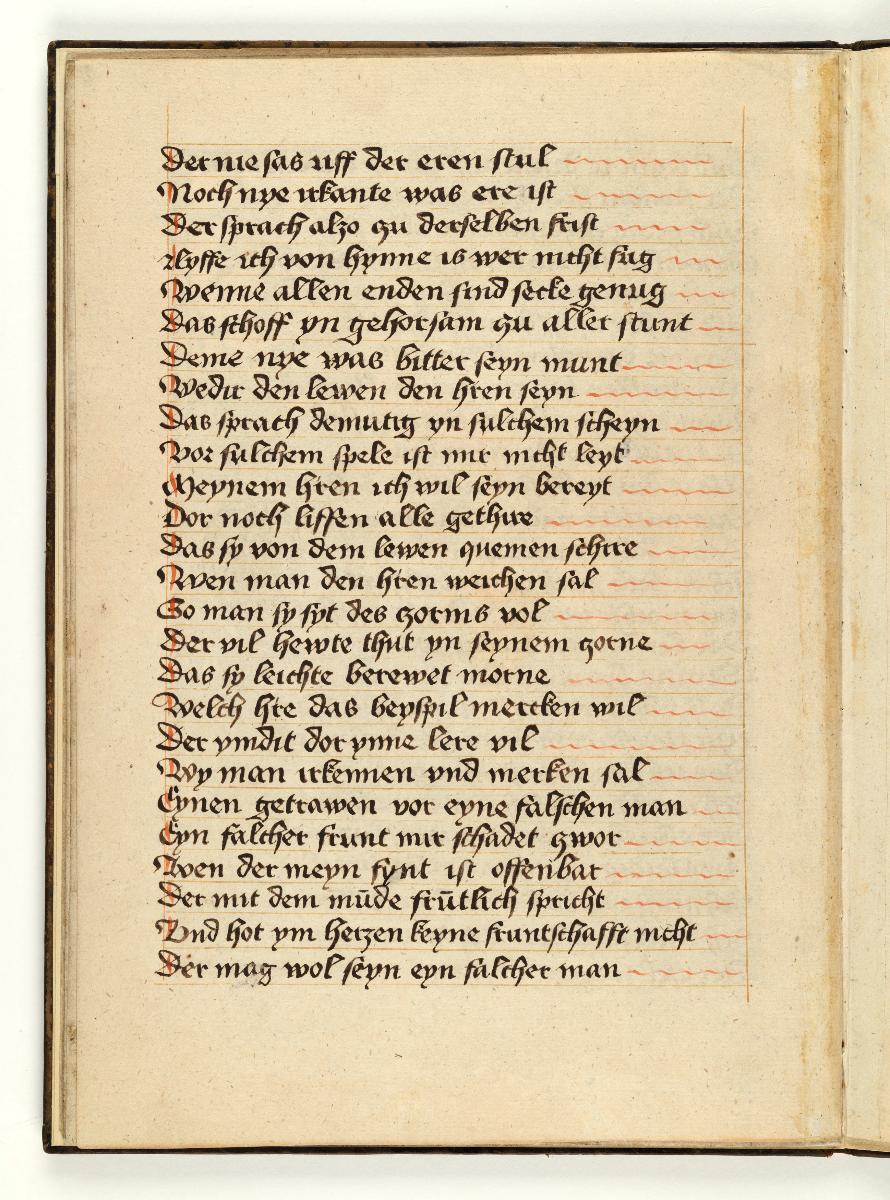 Der nie sas uff der eren stul
Noch nye irkante was ere ist
Der sprach alzo zu derselben frist
Lyffe ich von hynne is wer nicht fug
Wenne allen enden sind secke genug
Das schoff yn gehorsam zu aller stunt
Deme nye was bitter seyn munt
Wedir den lewen den hren seyn
Das sprach demutig yn sulchem scheyn
Vor sulchem spele ist mir nicht leyt
Meynem hren ich wil seyn bereyt
Dor noch liffen alle gethire
Das sy von dem lewen quemen schire
Wen man den hren weichen sal
So man sy syt des zorns vol
Der vil hewte thut yn seynem zorne
Das sy leichte berewet morne
Welch hre das beyspil mercken wil
Der vindit dor ynne lere vil
Wy man irkennen vnd merken sal
Eynen getrawen vor eyne falschen man
Eyn falcher frunt mir schadet zwor
Wen der meyn fynt ist offenbar
Der mit dem mūde frūtlich spricht
Vnd hot ym herzen keyne fruntschafft nicht
Der mag wol seyn eyn falcher man